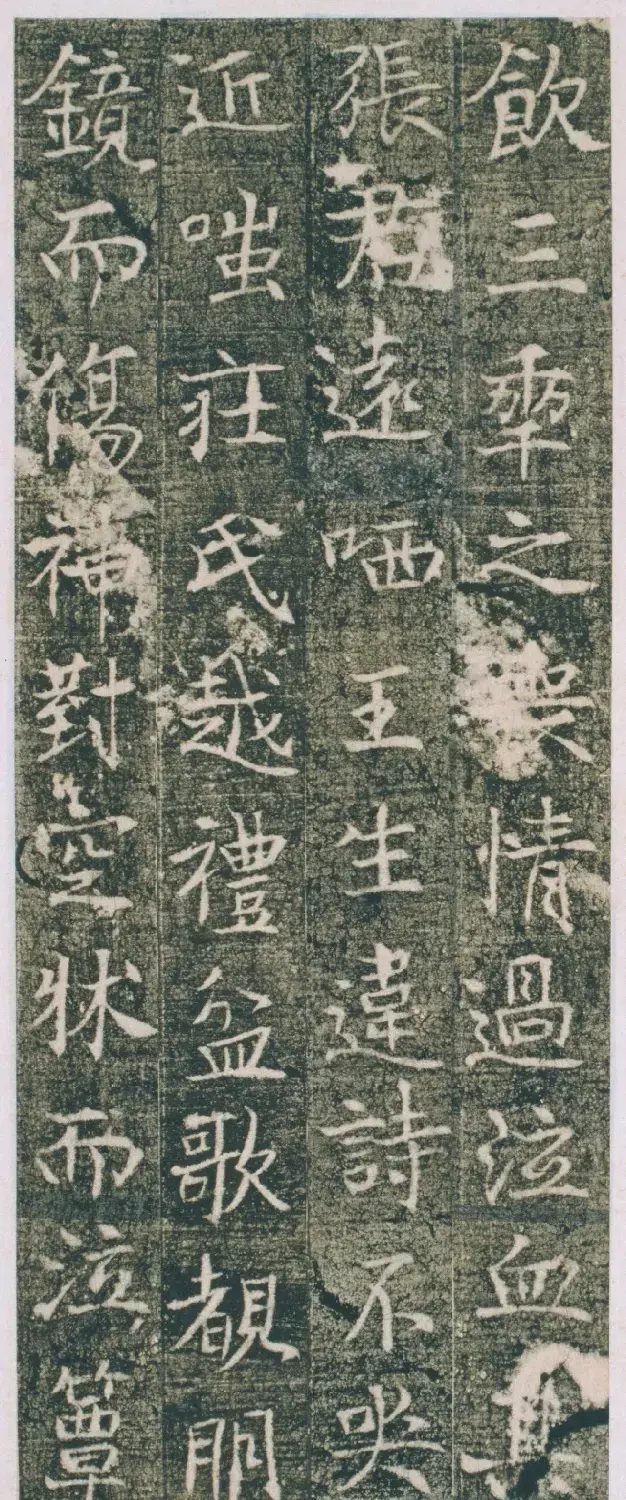 飲三之喪情過泣血其
張君遠哂王生違詩不哭
近嗤莊氏越禮盆歌覩明
鏡而傷神對空牀而泣簟